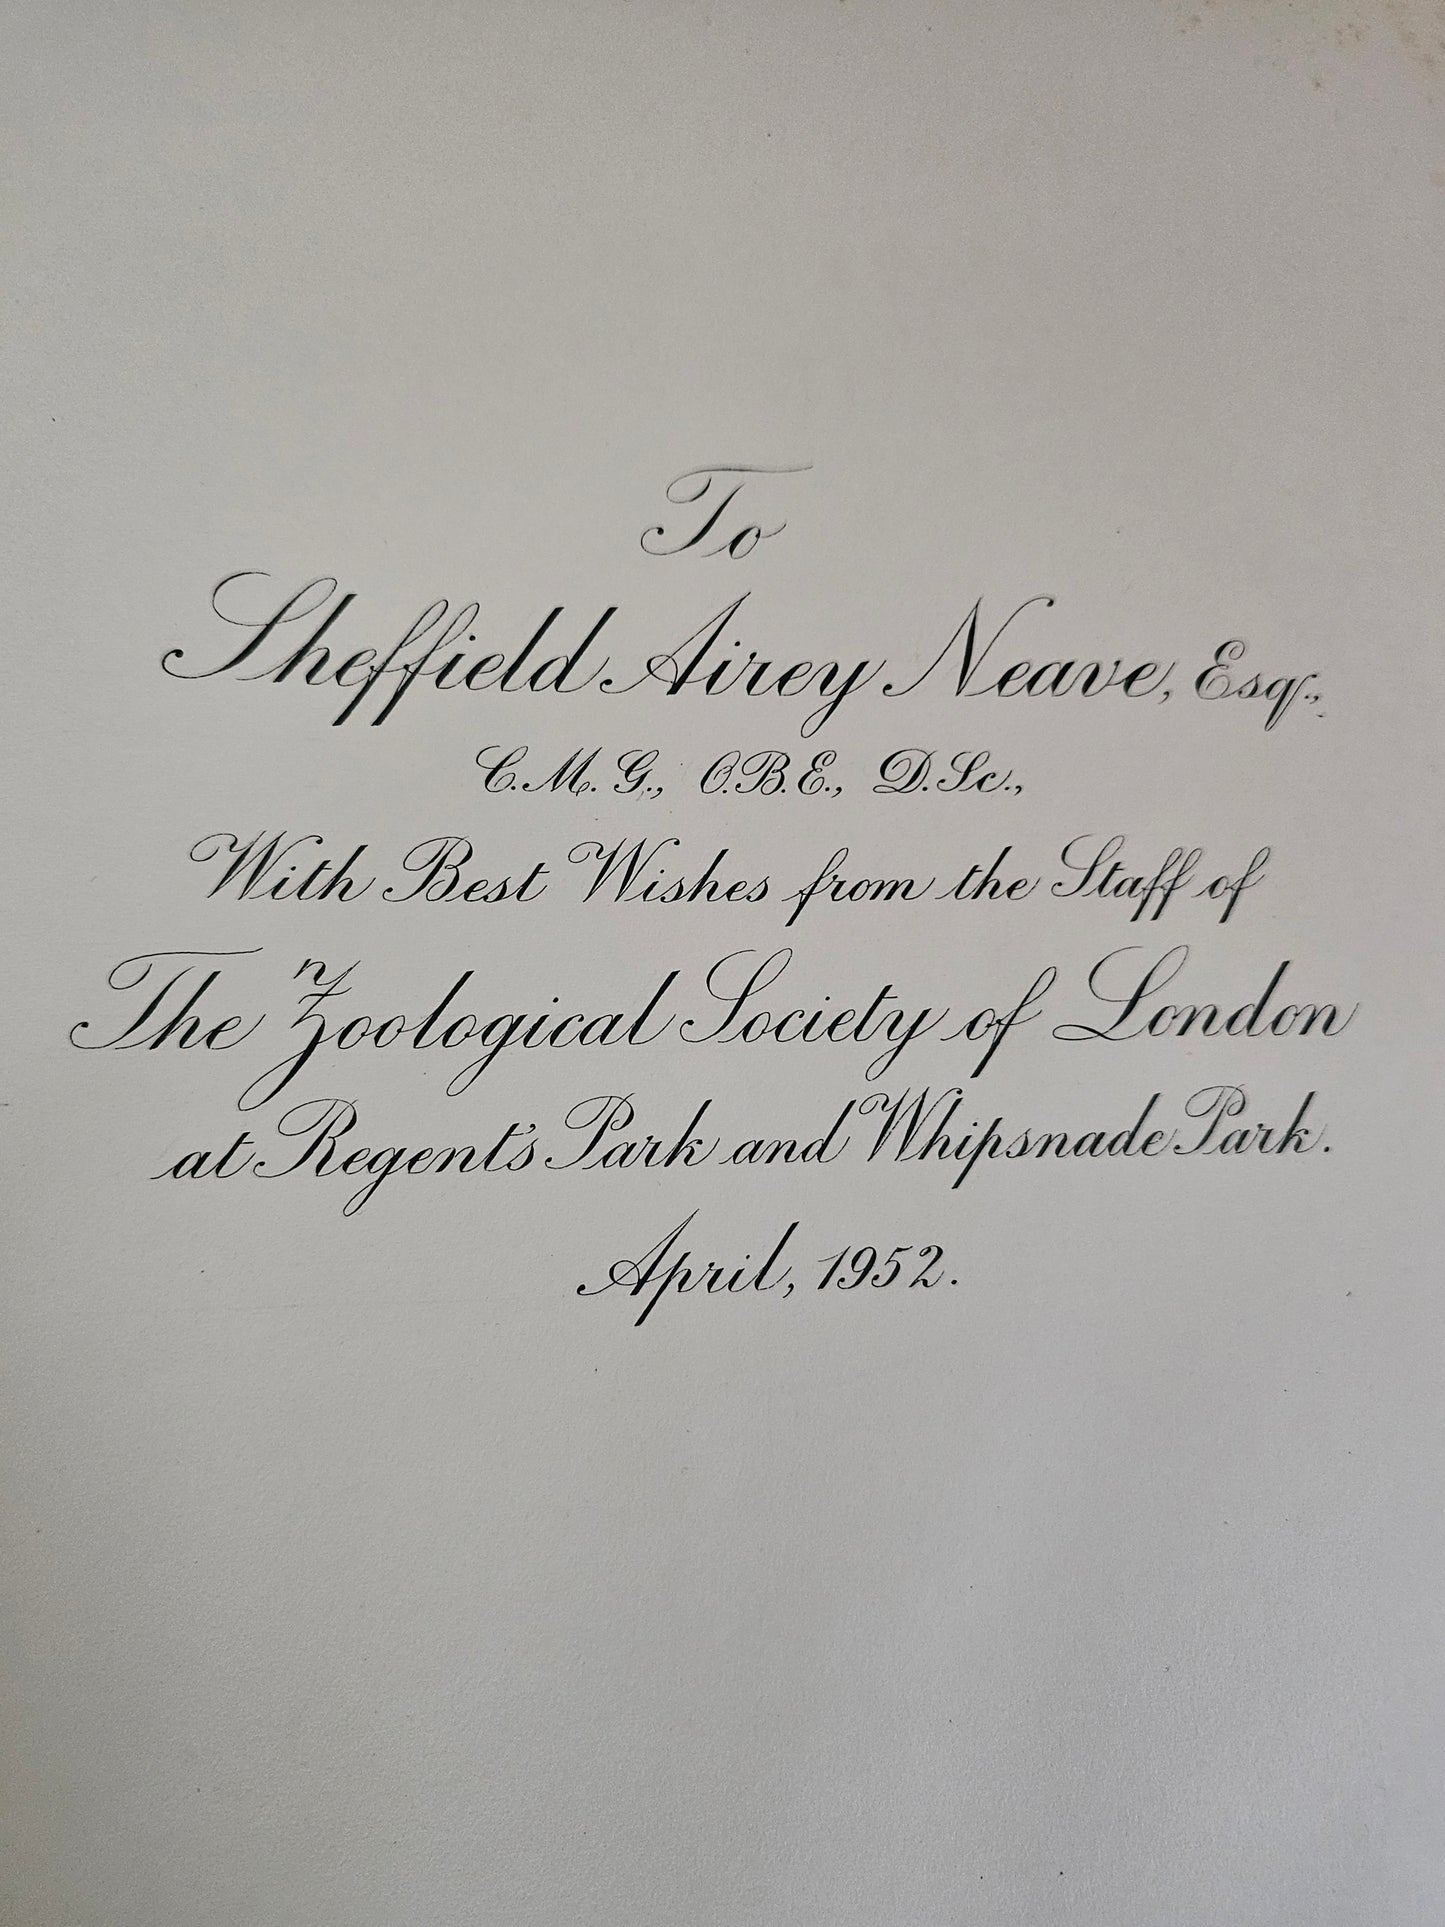 To
Sheffield Airey Neave, Esq.,
C.M.G., O.B.E., D.Sc.,
With Best Wishes from the Staff of
The Zoological Society of London
at Regent's Park and Whipsnade Park.
April, 1952.